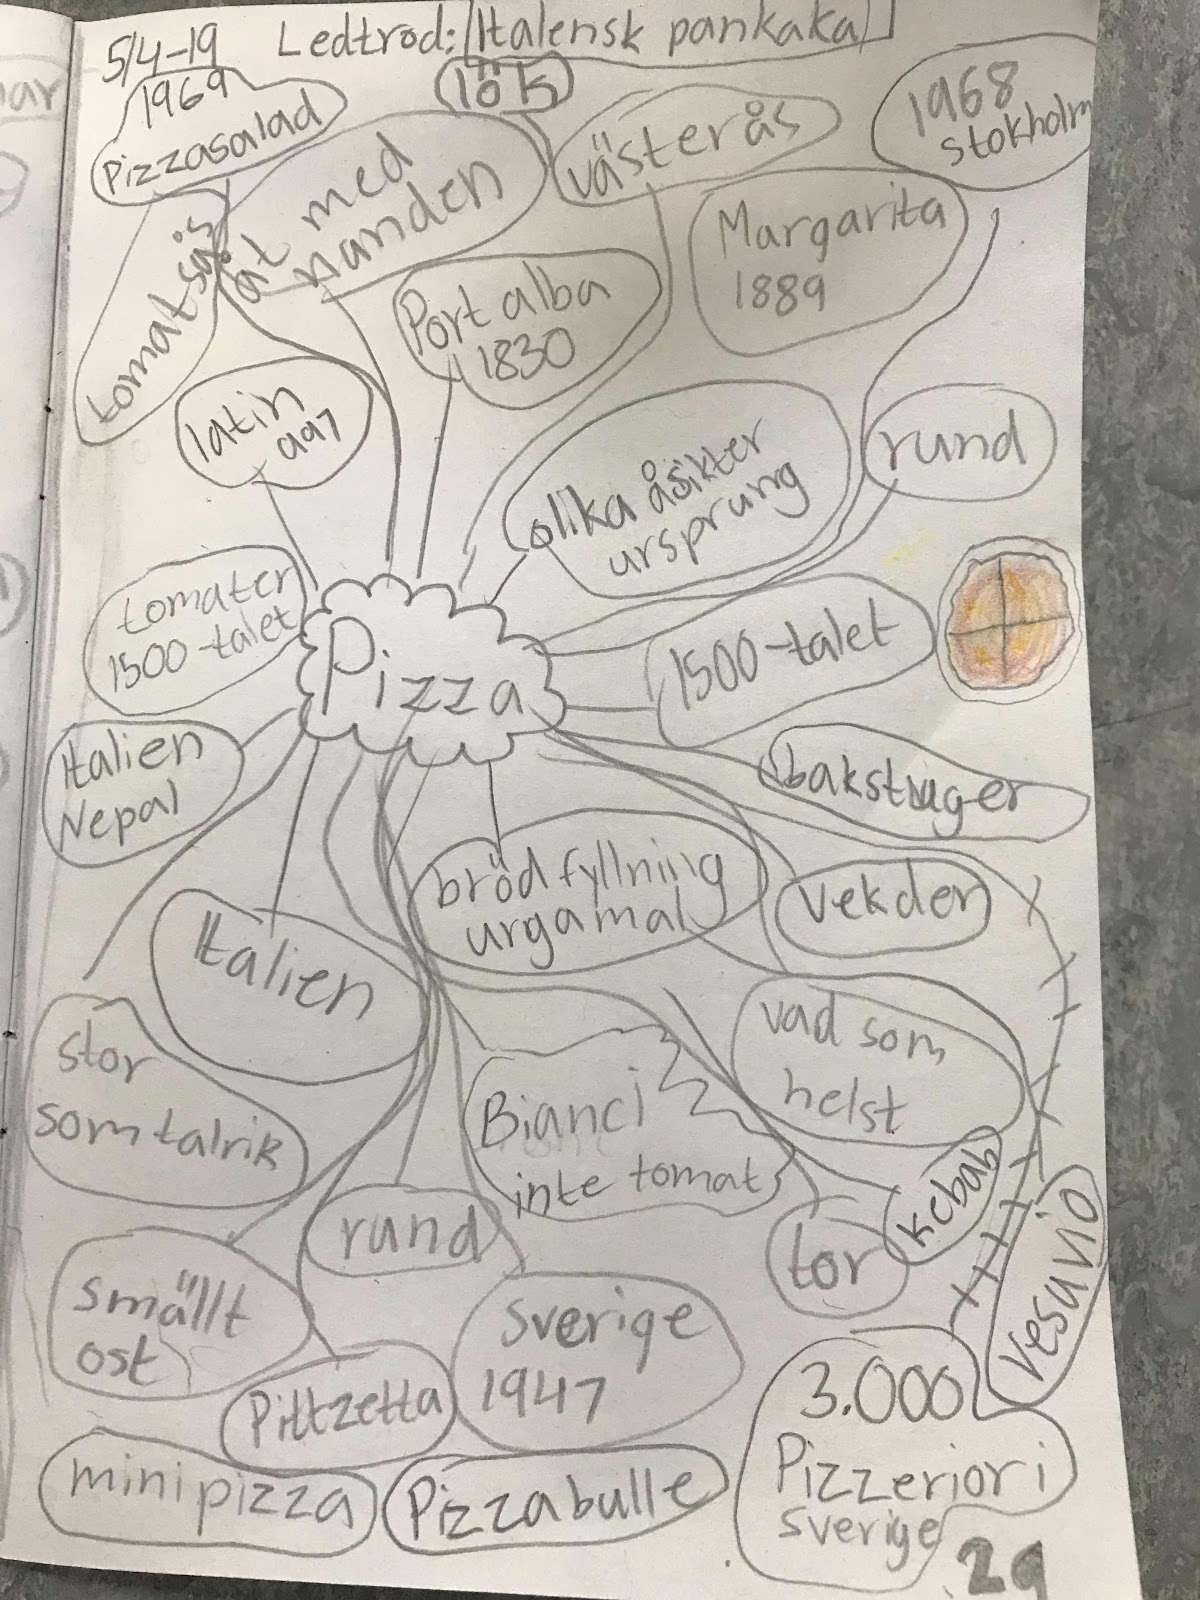 5/4-19 Ledtrod: Italensk pankaka
1969
Pizzasalad
lök
västerås
1968
stokholm
tomatsås
åt med
handen
Port alba
1830
Margarita
1889
latin
997
olika åsikter
ursprung
rund
tomater
1500-talet
Pizza
1500-talet
Italien
Nepal
bakstuger
bröd fyllning
urgamal
vekder
Italien
stor
som talrik
Bianci
inte tomat
vad som
helst
kebab
rund
tor
vesuvio
smällt
ost
Sverige
1947
Pittzetta
3.000
Pizzerior i
sverige
mini pizza
Pizzabulle
29